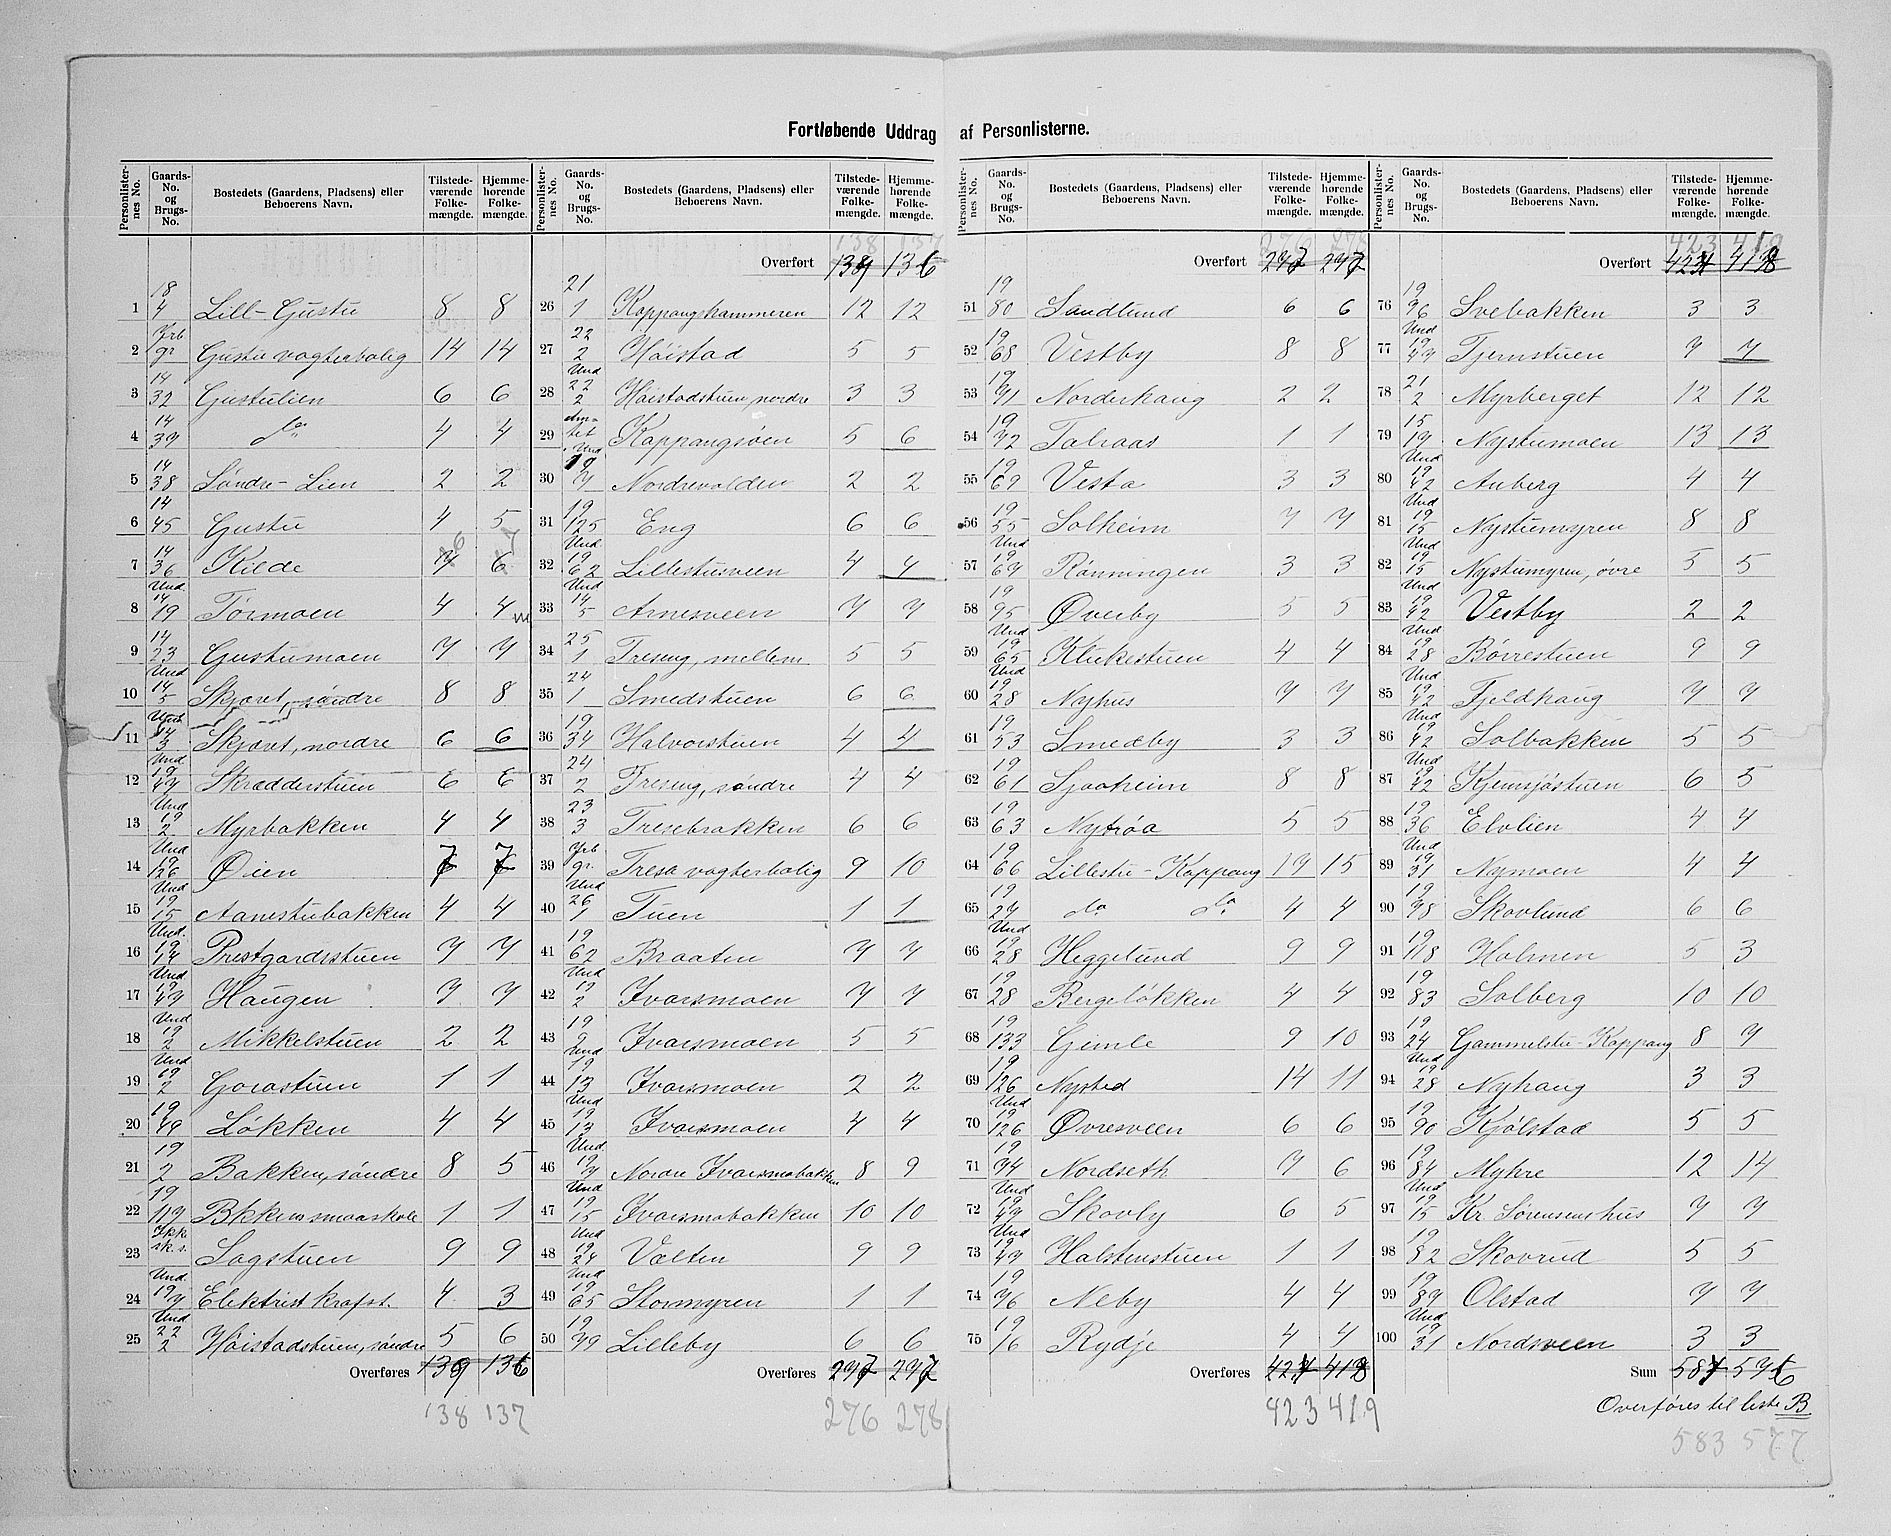 Fortløbende Uddrag af Personlisterne.
Personlister-nes No. Gaards-No. og Brugs-No. Bostedets (Gaardens, Pladsens) eller Beboerens Navn. Tilstede-værende Folke-mængde. Hjemme-hørende Folke-mængde.
1 18/4 Lill-Gustu 8 8
2 Jrb gr Gustu vogterbolig 14 14
3 14/32 Gustulien 6 6
4 14/37 do 4 4
5 14/38 Søndre-Lien 2 2
6 14/45 Gustu 4 5
7 14/36 Kilde 6
8 Und. 14/19 Tørmoen 4 4
9 14/23 Gustumoen 7 7
10 Und 14/5 Skjæret, søndre 8 8
11 Und 14/3 Skjæret, nordre 6 6
12 Und 19/47 Skrædderstuen 6 6
13 Und 19/2 Myrbakken 4 4
14 Und 19/126 Øien 7 7
15 Und 19/15 Aanestubakken 4 4
16 Und. 19/14 Prestgardsstuen 7 7
17 Und 19/49 Haugen 7 7
18 Und 19/2 Mikkelstuen 2 2
19 Und 19/2 Gorastuen 1 1
20 19/49 Løkken 4 4
21 19/2 Bakken, søndre 8 5
22 19/119 Bkkens smaaskole 1 1
23 Ikke sk.s. Sagstuen 9 9
24 Und. 19/7 Elektrisk krafst. 4 3
25 Und 22/2 Høistadstuen, søndre 5 6
Overføres 139 136
138 137
Personlister-nes No. Gaards-No. og Brugs-No. Bostedets (Gaardens, Pladsens) eller Beboerens Navn. Tilstede-værende Folke-mængde. Hjemme-hørende Folke-mængde.
138 137
Overført 139 136
26 21/1 Koppangkammeren 12 12
27 22/2 Høistad 5 5
28 Und 22/2 Høistadstuen, nordre 3 3
29 Am-tet Koppangsøen 5 6
30 Und 19/7 Nordrevolden 2 2
31 19/125 Eng 6 6
32 Und 19/62 Lillestusveen 4 4
33 Und 14/5 Arnesveen 7 7
34 25/1 Treseng, mellem 5 5
35 24/1 Smedstuen 6 6
36 19/34 Halvorstuen 4 4
37 24/2 Treseng, søndre 4 4
38 23/3 Tresebrakken 6 6
39 Jrb gr. Tresa vogterbolig 9 10
40 Und 26/1 Tuen 1 1
41 19/62 Braaten 7 7
42 Und 19/2 Ivarsmoen 7 7
43 19/2 Ivarsmoen 5 5
44 Und 19/13 Ivarsmoen 2 2
45 Und 19/13 Ivarsmoen 4 4
46 Und. 19/7 Nordre Ivarsmobakken 8 9
47 Und 19/15 Ivarsmobakken 10 10
48 Und 19/24 Valten 9 9
49 Und 19/65 Stormyren 1 1
50 19/79 Lilleby 6 6
Overføres 297 297
276 278
Personlister-nes No. Gaards-No. og Brugs-No. Bostedets (Gaardens, Pladsens) eller Beboerens Navn. Tilstede-værende Folke-mængde. Hjemme-hørende Folke-mængde.
276 278
Overført 297 297
51 19/80 Sandlund 6 6
52 19/68 Vestby 8 8
53 19/91 Norderhaug 2 2
54 19/72 Talraas 1 1
55 19/69 Vesta 3 3
56 19/55 Solheim 7 7
57 Und 19/64 Rønningen 3 3
58 19/95 Øverby 5 5
59 Und 19/65 Klukestuen 4 4
60 Und 19/28 Nyhus 7 7
61 19/53 Smedby 3 3
62 19/61 Sjøaheim 8 8
63 19/63 Nytrøa 5 5
64 19/66 Lillestu-Koppang 17 15
65 19/27 do do 4 4
66 Und 19/28 Heggelund 9 9
67 19/28 Bergeløkken 4 4
68 19/133 Gimle 9 10
69 19/126 Nysted 14 11
70 Und 19/126 Øvresveen 6 6
71 19/94 Nordseth 7 6
72 Und 19/49 Skovly 6 5
73 Und 19/49 Halstenstuen 1 1
74 19/76 Neby 4 4
75 19/16 Rydje 4 4
Overføres 424 418
423 419
Personlister-nes No. Gaards-No. og Brugs-No. Bostedets (Gaardens, Pladsens) eller Beboerens Navn. Tilstede-værende Folke-mængde. Hjemme-hørende Folke-mængde.
423 419
Overført 424 418
76 19/96 Svebakken 3 3
77 Und 19/49 Tjernstuen 7 7
78 21/2 Myrberget 12 12
79 15/19 Nystumoen 13 13
80 Und 19/42 Auberg 4 4
81 Und 19/15 Nystumyren 8 8
82 Und 19/15 Nystumyren, øvre 5 5
83 Und 19/42 Vestby 2 2
84 Und 19/28 Børrestuen 9 9
85 Und 19/42 Fjeldhaug 7 7
86 Und 19/42 Solbakken 5 5
87 Und 19/42 Kjemsjøstuen 6 5
88 19/36 Elvlien 4 4
89 Und 19/31 Nymoen 4 4
90 19/98 Skovlund 6 6
91 19/118 Holmen 5 3
92 19/83 Solberg 10 10
93 19/24 Gammelstu-Koppang 8 7
94 Und 19/28 Nyhaug 3 3
95 19/90 Kjølstad 5 5
96 19/84 Myhre 12 14
97 Und 19/15 Kr. Sørensens hus 7 7
98 19/82 Skovrud 5 5
99 19/89 Olstad 7 7
100 Und 19/31 Nordsveen 3 3
Sum 587 576
Overføres til liste B
583 577